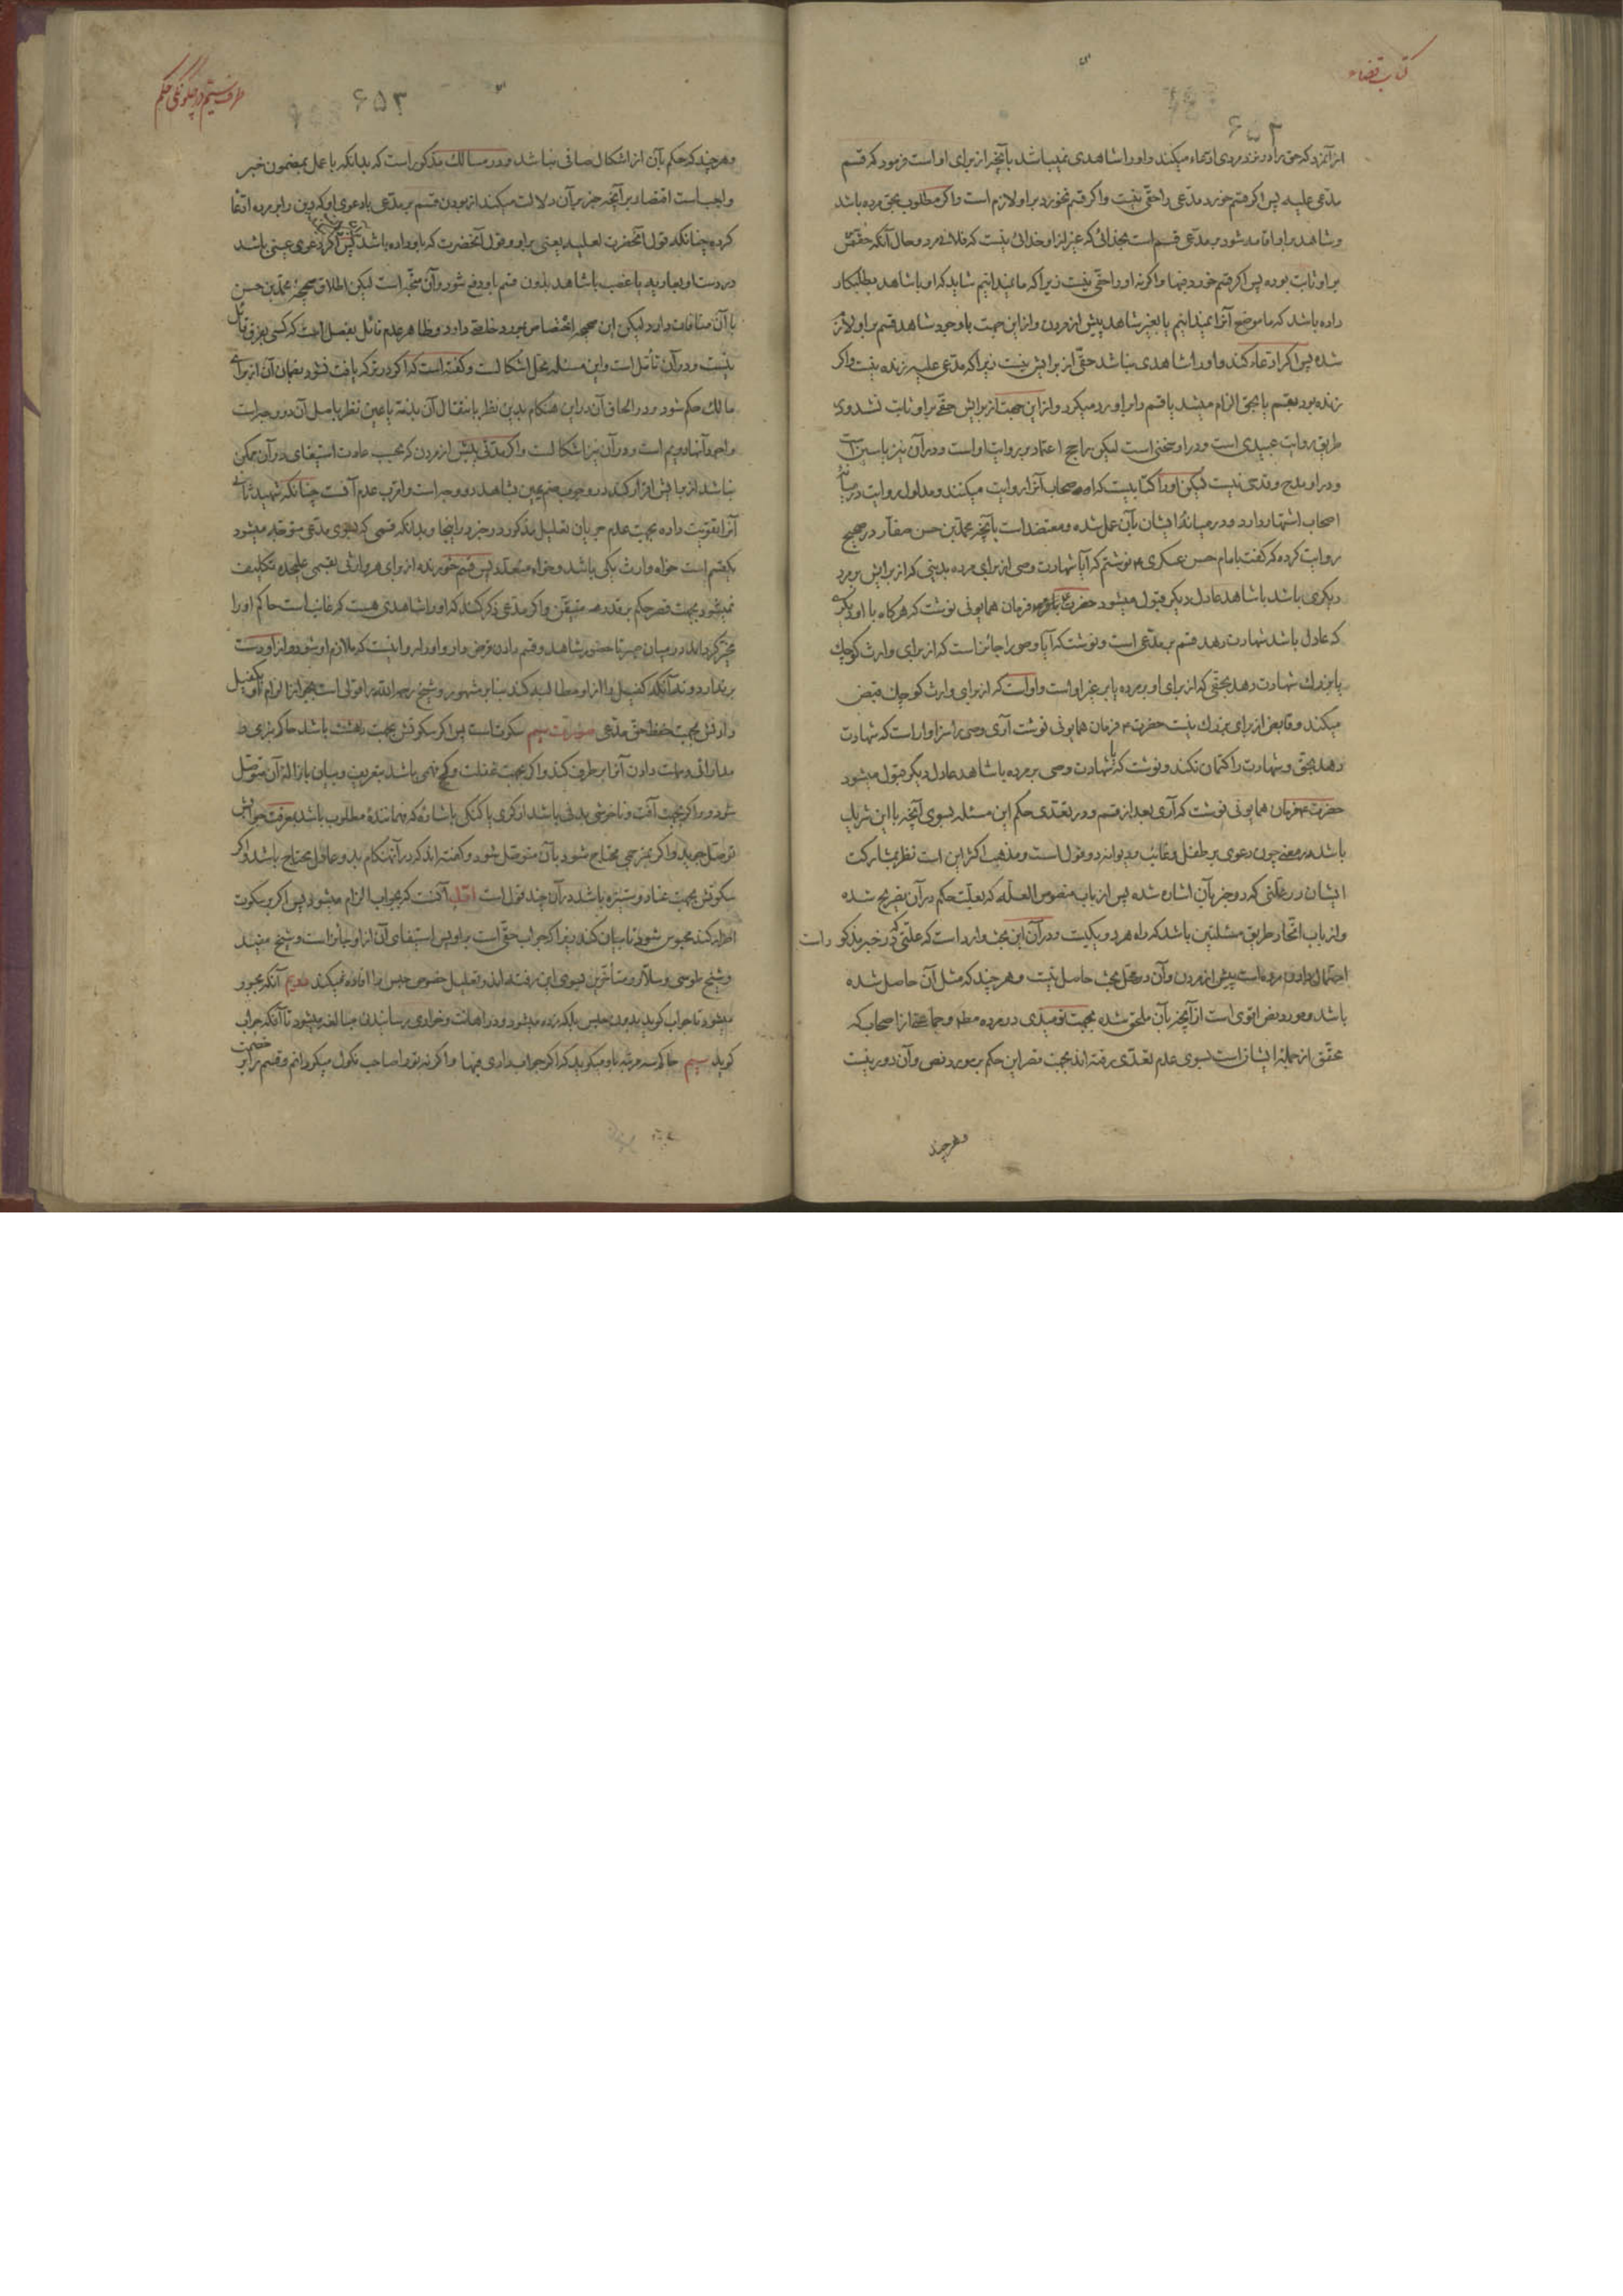 کتاب قضاء
۶۵۲
از آنمرد که حق را در نزد مردی ادعاء میکند و او را شاهدی نمیباشد بآنچه از برای او است فرمود که قسم
مدعی علیه پس اگر قسم خورد مدعی را حقی نیست و اگر قسم نخورد بر او لازم است و اگر مطلوب بحق مرده باشد
و شاهد بر او اقامه شود بر مدعی قسم است بخدائی که غیر از او خدائی نیست که فلانه مرد و حال آنکه حقش
بر او ثابت بوده پس اگر قسم خورد فبها و اگر نه او را حقی نیست زیرا که ما نمیدانیم شاید که او با شاهد بطلبکار
داده باشد که ما موضع آنرا نمیدانیم یا بغیر شاهد پیش از مردن و از این جهت با وجود شاهد قسم بر او لازم
شده پس اگر ادعاء کند و او را شاهدی نباشد حقی از برایش نیست زیرا که مدعی علیه زنده نیست و اگر
زنده بود بقسم یا بحق الزام میشد یا قسم را بر او رد میکرد و از این جهت از برایش حقی بر او ثابت نشد و در
طریق روایت عبیدی است و در او سخنی است لیکن راجح اعتماد بر روایت او است و در آن نیز یاسین است
و در او مدح و قدحی نیست لیکن او را کتابیست که اصحاب آنرا روایت میکنند و مدلول روایت در میانه
اصحاب اشتهار دارد و در میانهٔ ایشان بآن عمل شده و معتضد است بآنچه محمد بن حسن صفار در صحیح
روایت کرده که گفت بامام حسن عسکری ع نوشتم که آیا شهادت وصی از برای مرده بدینی که از برایش بر مرد
دیگری باشد با شاهد عادل دیگر قبول میشود حضرت فرمان همایونی نوشت که هر گاه با او دیگری
که عادل باشد شهادت دهد قسم بر مدعی است و نوشت که آیا وصی را جائز است که از برای وارث کوچک
یا بزرک شهادت دهد بحقی که از برای او بر مرده یا بر غیر او است و او است که از برای وارث کوچک قبض
میکند و قابض از برای بزرک نیست حضرت ع فرمان همایونی نوشت آری وصی را سزاوار است که شهادت
دهد بحق و شهادت را کتمان نکند و نوشت که آیا شهادت وصی بر مرده با شاهد عادل دیگر قبول میشود
حضرت ع فرمان همایونی نوشت که آری بعد از قسم و در تعدی حکم این مسئله بسوی آنچه با این شریک
باشد در معنی چون دعوی بر طفل و غائب و دیوانه دو قول است و مذهب اکثر این است نظر بمشارکت
ایشان در علتی که در خبر بآن اشاره شده پس از باب منصوص العله که بعلت حکم در آن تصریح شده
و از باب اتحاد طریق مسئلتین باشد که راه هر دو یکیست و در آن این بحث وارد است که علتی که در خبر مذکور است
احتمال دادن مرده است پیش از مردن و آن در محل بحث حاصل نیست و هر چند که مثل آن حاصل شده
باشد و مورد نص اقوی است از آنچه بآن ملحق شده بجهت نومیدی در مرده مطلقا و جماعتی از اصحاب که
محقق از جملهٔ ایشان است بسوی عدم تعدی رفته‌اند بجهت قصر این حکم بر مورد نص و آن دور نیست
و هر چند
طرف سیم در چگونگی حکم
۶۵۳
و هر چند که حکم بآن از اشکال صافی نباشد و در مسالک مذکور است که بدانکه با عمل بمضمون خبر
واجب است اقتصار بر آنچه خبر بر آن دلالت میکند از بودن قسم بر مدعی با دعوی او که دین را بر مرده ادعا
کرده چنانکه قول آنحضرت لعلیه یعنی بر او و قول آنحضرت که باو داده باشد پس اگر دعوی عینی باشد
در دست او بعاریه یا غصب با شاهد بدون قسم باو دفع شود و آن متجه است لیکن اطلاق صحیحهٔ محمد بن حسن
با آن منافات دارد لیکن این صحیحه اختصاص بمورد خاصه دارد و ظاهر عدم قائل بفصل است که کسی بفرق قائل
نیست و در آن تأمل است و این مسئله محل اشکال است و گفته است که اگر در ترکه یافت نشود بضمان آن از برای
مالک حکم شود و در الحاق آن در این هنگام بدین نظر بانتقال آن بذمه یا بعین نظر باصل آن دو وجه است
و اجود آنها دویم است و در آن نیز اشکال است و اگر مدتی پیش از مردن که بحسب عادت استیفای در آن ممکن
نباشد از برایش اقرار کند در وجوب ضم یمین بشاهد دو وجه است و اقرب عدم آنست چنانکه شهید ثانی
آنرا تقویت داده بجهت عدم جریان تعلیل مذکور در خبر در اینجا و بدانکه قسمی که بسوی مدعی متوجه میشود
یکقسم است خواه وارث یکی باشد و خواه متعدد پس قسم خورنده از برای هر وارثی بقسمی علیحده تکلیف
نمیشود بجهت قصر حکم بر قدر متیقن و اگر مدعی ذکر کند که او را شاهدی هست که غائب است حاکم او را
مخیر گرداند در میان صبر تا حضور شاهد و قسم دادن غریم و او را روا نیست که ملازم او شود و از او دست
بر ندارد و نه آنکه کفیل را از او مطالبه کند بنابر مشهور و شیخ رحمه الله را قولی است بجواز الزام او بکفیل
دادنش بجهت حفظ حق مدعی صورت سیم سکوت است پس اگر سکوتش بجهت دهشت باشد حاکم بنرمی و
مدارائی و مهلت دادن آنرا برطرف کند و اگر بجهت غفلت و کج فهمی باشد بتعریف و بیان بازالهٔ آن متوصل
شود و اگر بجهت آفت و ناخوشی بدنی باشد از کری یا گنگی باشاره که فهمانندهٔ مطلوب باشد بمعرفت جوابش
توصل جوید و اگر بمترجمی محتاج شود بآن متوصل شود و گفته‌اند که در آنهنگام بدو عادل محتاج باشد و اگر
سکوتش بجهت عناد و ستیزه باشد در آن چند قول است اول آنست که بجواب الزام میشود پس اگر بر سکوت
اصرار کند محبوس شود تا بیان کند زیرا که جواب حقی است بر او پس استیفای آن از او جائز است و شیخ مفید
و شیخ طوسی و سلار و متأخرین بسوی این رفته‌اند و تعلیل خصوص حبس را افاده نمیکند دویم آنکه مجبور
میشود تا جواب گوید بدون حبس بلکه زده میشود و در اهانت و خواری رسانیدن مبالغه میشود تا آنکه جواب
گوید سیم حاکم سه مرتبه باو میگوید که اگر جواب دادی فبها و اگر نه تو را صاحب نکول میگردانم و قسم را بر خصمت